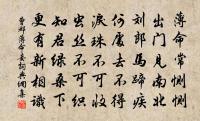 薄命常惻惻
出門見南北
劉郎馬蹄疾
何處去不得
淚珠不可收
虫絲不可織
知君綠桑下
更有新相識
曹鄴薄命妾詞典網書